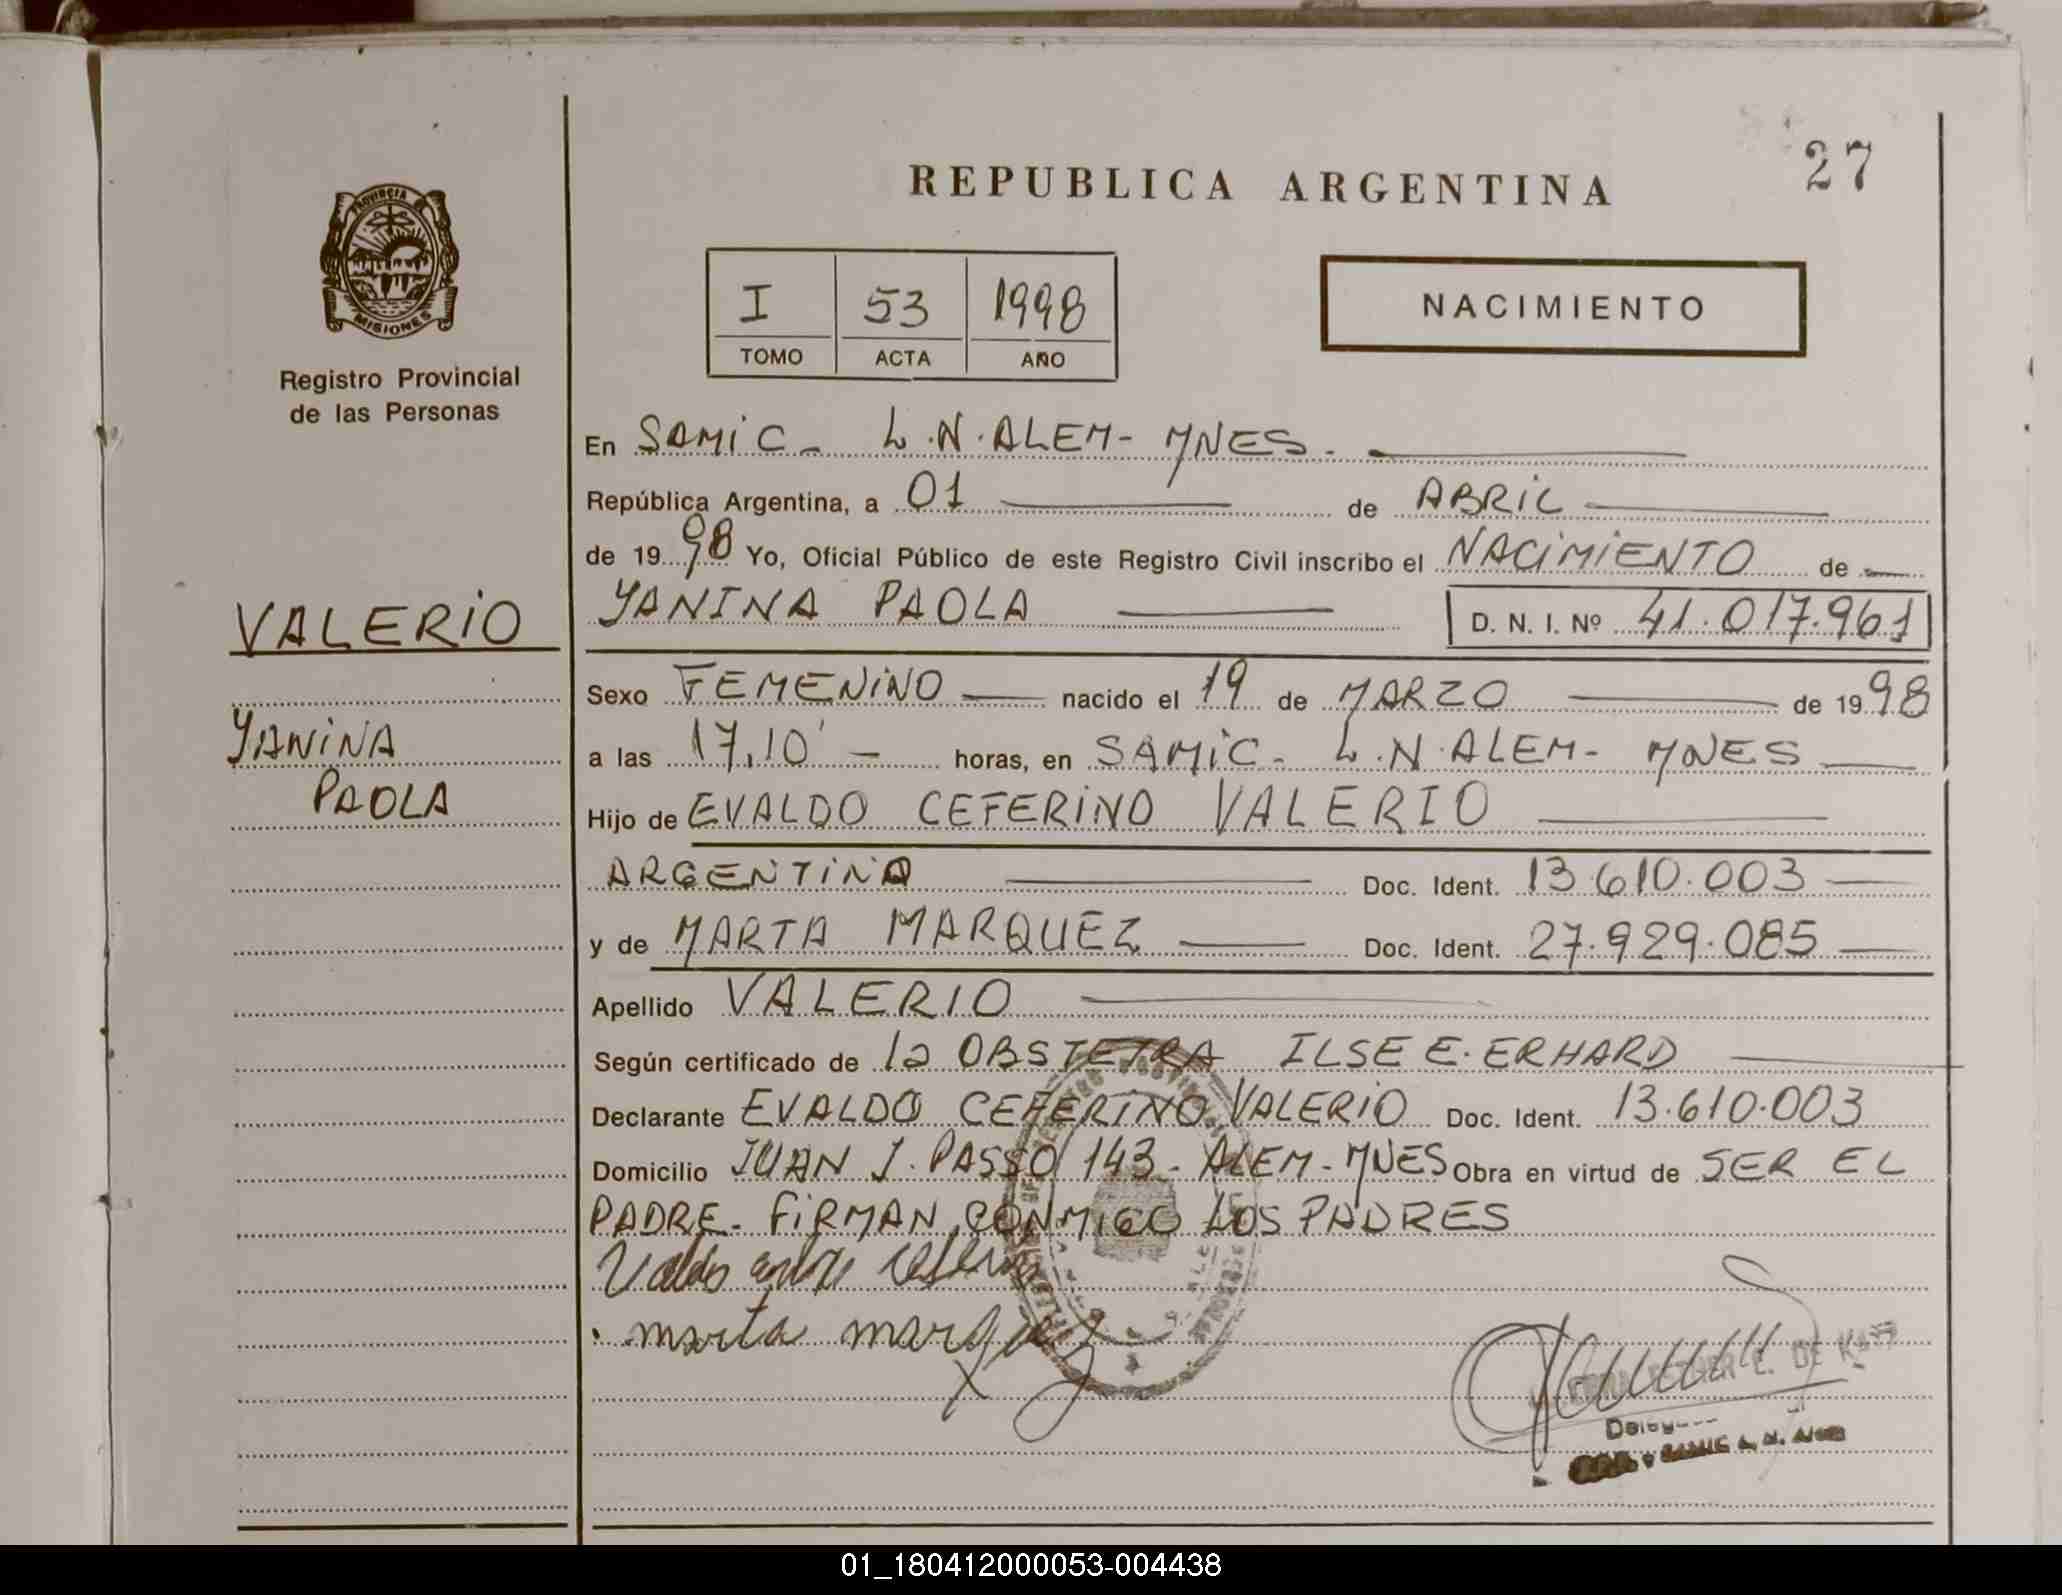 27
REPUBLICA ARGENTINA
PROVINCIA DE
MISIONES
Registro Provincial
de las Personas
I 53 1998
TOMO ACTA AÑO
NACIMIENTO
En SAMIC - L.N. ALEM - MNES -
República Argentina, a 01 de ABRIL
de 1998 Yo, Oficial Público de este Registro Civil inscribo el NACIMIENTO de
VALERIO
YANINA PAOLA D. N. I. Nº 41.017.961
Sexo FEMENINO nacido el 19 de MARZO de 1998
YANINA
a las 17,10' - horas, en SAMIC - L.N. ALEM - MNES
PAOLA
Hijo de EVALDO CEFERINO VALERIO
ARGENTINA Doc. Ident. 13.610.003
y de MARTA MARQUEZ Doc. Ident. 27.929.085
Apellido VALERIO
Según certificado de la OBSTETRA ILSE E. ERHARD
Declarante EVALDO CEFERINO VALERIO Doc. Ident. 13.610.003
Domicilio JUAN J. PASSO 143 - ALEM - MNES Obra en virtud de SER EL
PADRE - FIRMAN CONMIGO LOS PADRES
marta marquez
DE
01_180412000053-004438